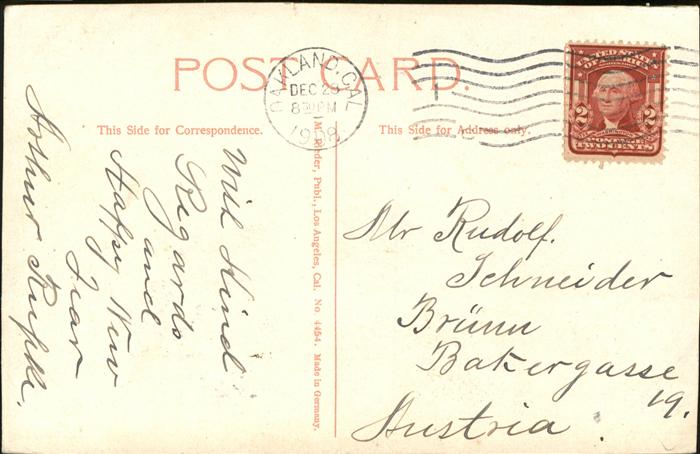 POST CARD.
OAKLAND, CAL
DEC 29
8 30 PM
1908
UNITED STATES
OF AMERICA
2 WASHINGTON 2
TWO CENTS
This Side for Correspondence.
This Side for Address only.
With Kind
Regards
and
Happy New
Year
Arthur
M. Rieder, Publ., Los Angeles, Cal. No. 4454. Made in Germany.
Mr Rudolf.
Schneider
Brünn
Bakergasse
19.
Austria.